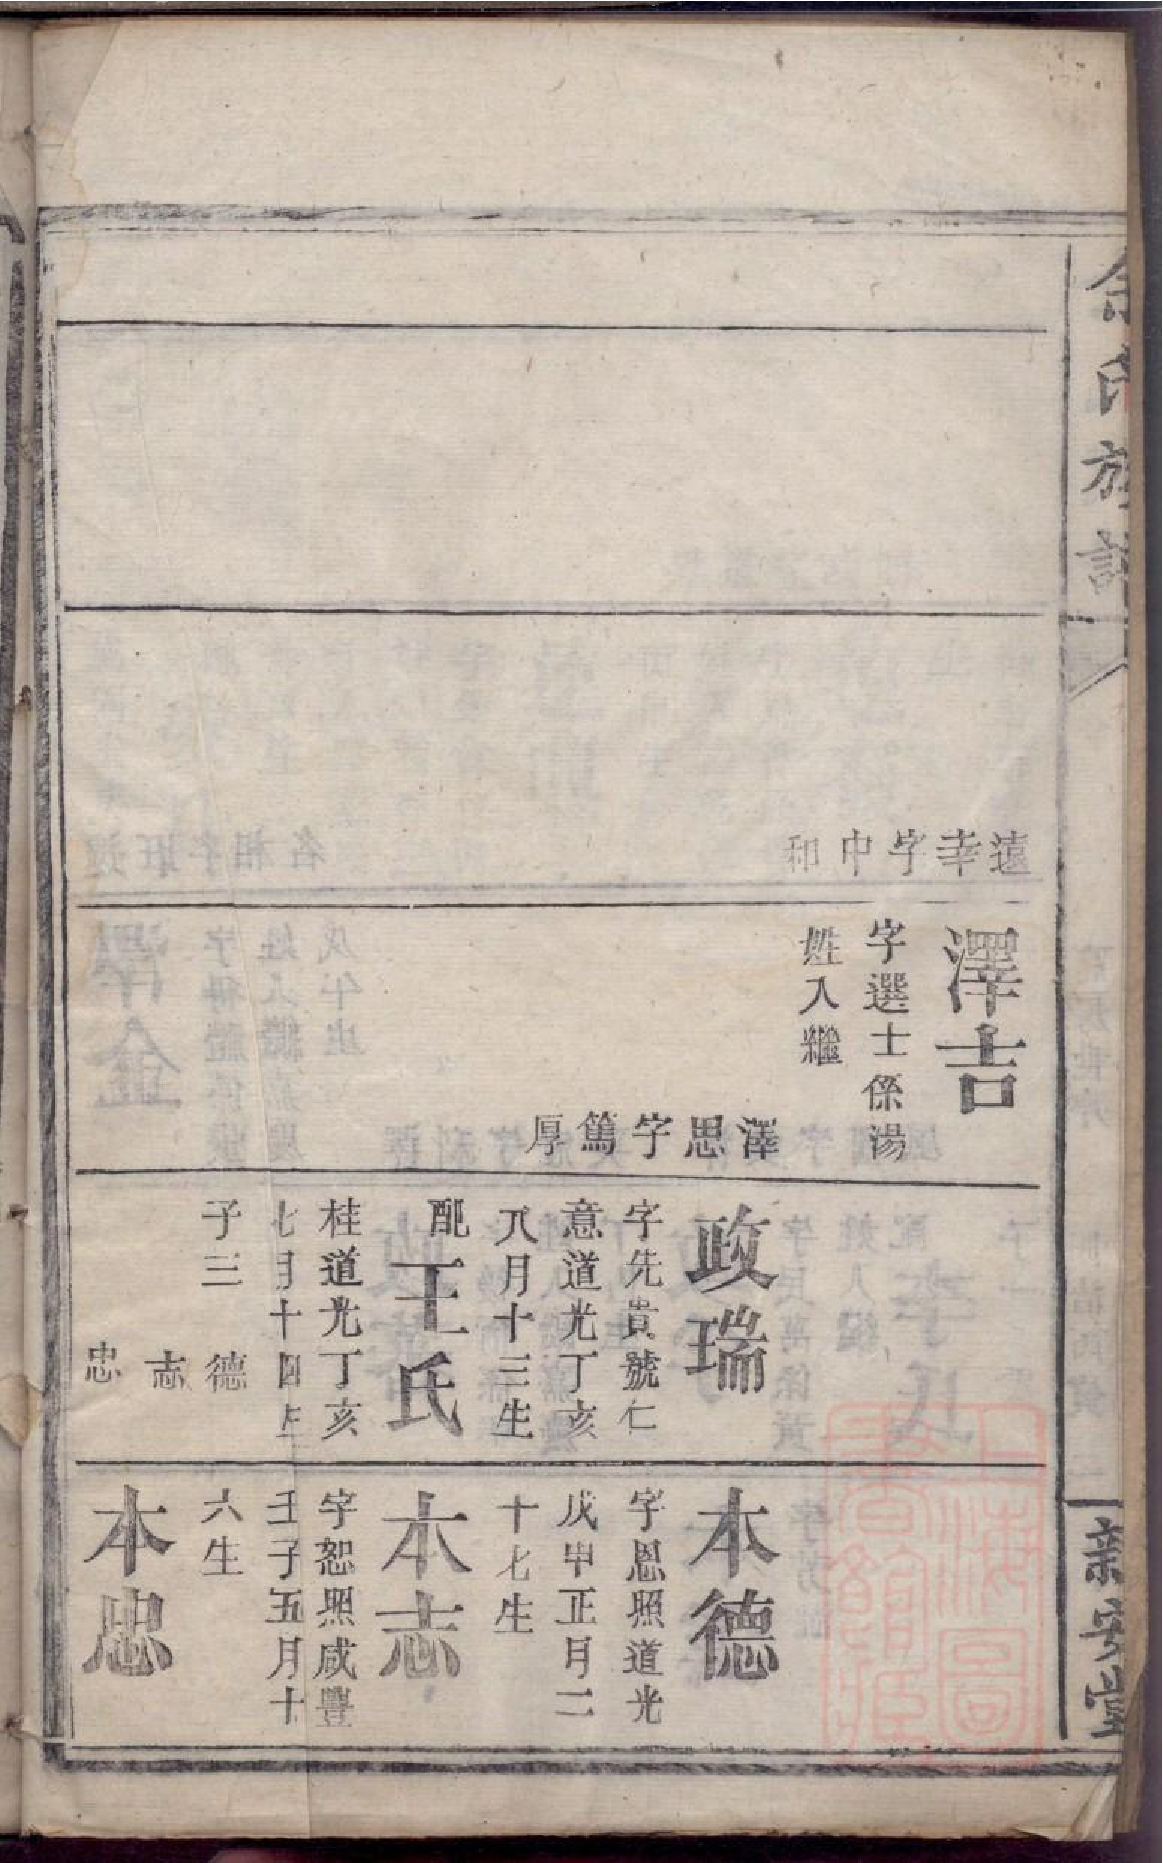 余氏族譜
亲安堂
遠幸字中和
澤吉
字選士係湯
姓入繼
澤思字篤厚
政瑞
字先貴號仁
意道光丁亥
八月十三生
配王氏
桂道光丁亥
七月十四生
子三
德
志
忠
本德
字恩照道光
戊申正月二
十七生
本志
字恕照咸豐
壬子五月十
六生
本忠
上海圖書館藏